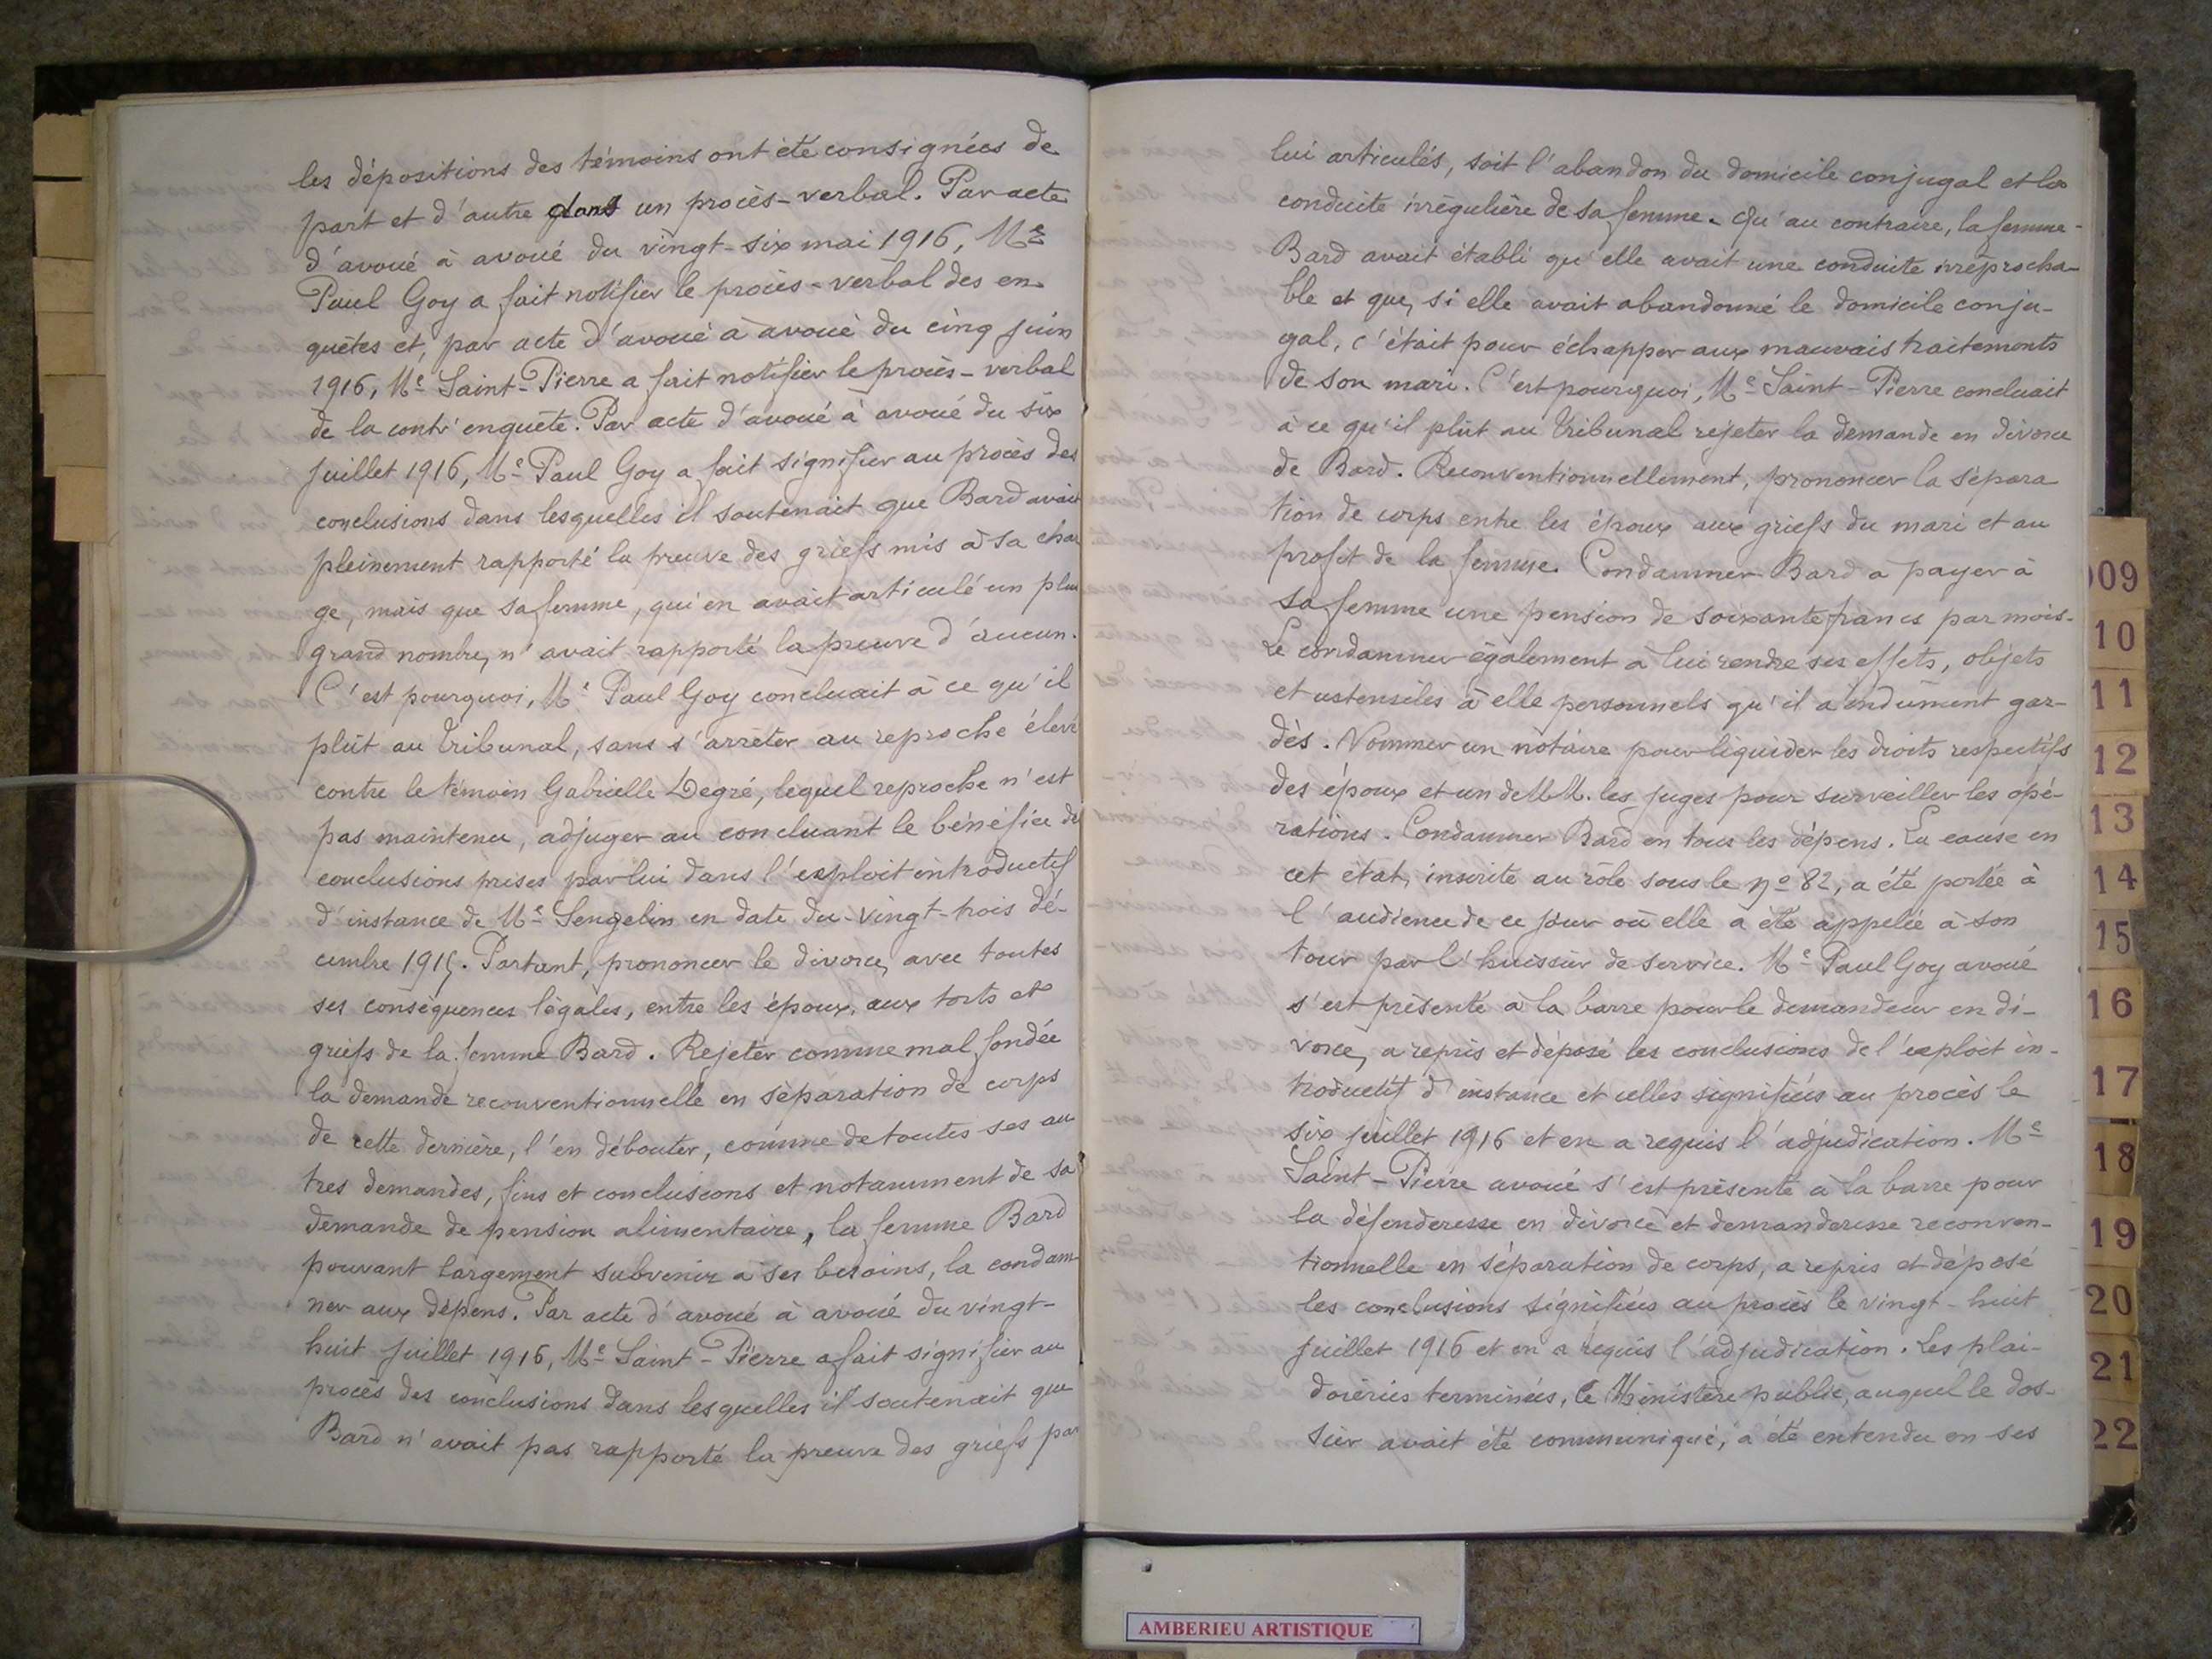 les dépositions des témoins ont été consignées de
part et d'autre dans un procès-verbal. Par acte
d'avoué à avoué du vingt-six mai 1916, Me
Paul Goy a fait notifier le procès-verbal des en-
quêtes et, par acte d'avoué à avoué du cinq juin
1916, Me Saint-Pierre a fait notifier le procès-verbal
de la contr'enquête. Par acte d'avoué à avoué du six
juillet 1916, Me Paul Goy a fait signifier au procès des
conclusions dans lesquelles il soutenait que Bard avait
pleinement rapporté la preuve des griefs mis à sa char
ge, mais que sa femme, qui en avait articulé un plus
grand nombre, n'avait rapporté la preuve d'aucun.
C'est pourquoi, Me Paul Goy concluait à ce qu'il
plût au Tribunal, sans s'arrêter au reproche élevé
contre le témoin Gabrielle Degré, lequel reproche n'est
pas maintenu, adjuger au concluant le bénéfice des
conclusions prises par lui dans l'exploit introductif
d'instance de Me Sengelin en date du vingt-trois dé-
cembre 1915. Partant, prononcer le divorce, avec toutes
ses conséquences légales, entre les époux, aux torts et
griefs de la femme Bard. Rejeter comme mal fondée
la demande reconventionnelle en séparation de corps
de cette dernière, l'en débouter, comme de toutes ses au
tres demandes, fins et conclusions et notamment de sa
demande de pension alimentaire, la femme Bard
pouvant largement subvenir à ses besoins, la condam-
ner aux dépens. Par acte d'avoué à avoué du vingt-
huit juillet 1916, Me Saint-Pierre a fait signifier au
procès des conclusions dans lesquelles il soutenait que
Bard n'avait pas rapporté la preuve des griefs par
lui articulés, soit l'abandon du domicile conjugal et la
conduite irrégulière de sa femme. Qu'au contraire, la femme
Bard avait établi qu'elle avait une conduite irréprocha-
ble et que, si elle avait abandonné le domicile conju-
gal, c'était pour échapper aux mauvais traitements
de son mari. C'est pourquoi, Me Saint-Pierre concluait
à ce qu'il plût au Tribunal rejeter la demande en divorce
de Bard. Reconventionnellement, prononcer la sépara
tion de corps entre les époux aux griefs du mari et au
profit de la femme. Condamner Bard a payer à
sa femme une pension de soixante francs par mois.
Le condamner également à lui rendre ses effets, objets
et ustensiles à elle personnels qu'il a indûment gar-
dés. Nommer un notaire pour liquider les droits respectifs
des époux et un de MM. les juges pour surveiller les opé-
rations. Condamner Bard en tous les dépens. La cause en
cet état, inscrite au rôle sous le No 82, a été portée à
l'audience de ce jour où elle a été appelée à son
tour par l'huissier de service. Me Paul Goy avoué
s'est présenté à la barre pour le demandeur en di-
vorce, a repris et déposé les conclusions de l'exploit in-
troductif d'instance et celles signifiées au procès le
six juillet 1916 et en a requis l'adjudication. Me
Saint-Pierre avoué s'est présenté à la barre pour
la défenderesse en divorce et demanderesse reconven-
tionnelle en séparation de corps, a repris et déposé
les conclusions signifiées au procès le vingt-huit
juillet 1916 et en a requis l'adjudication. Les plai-
doieries terminées, le Ministère public, auquel le dos-
sier avait été communiqué, a été entendu en ses
09
10
11
12
13
14
15
16
17
18
19
20
21
22
AMBERIEU ARTISTIQUE